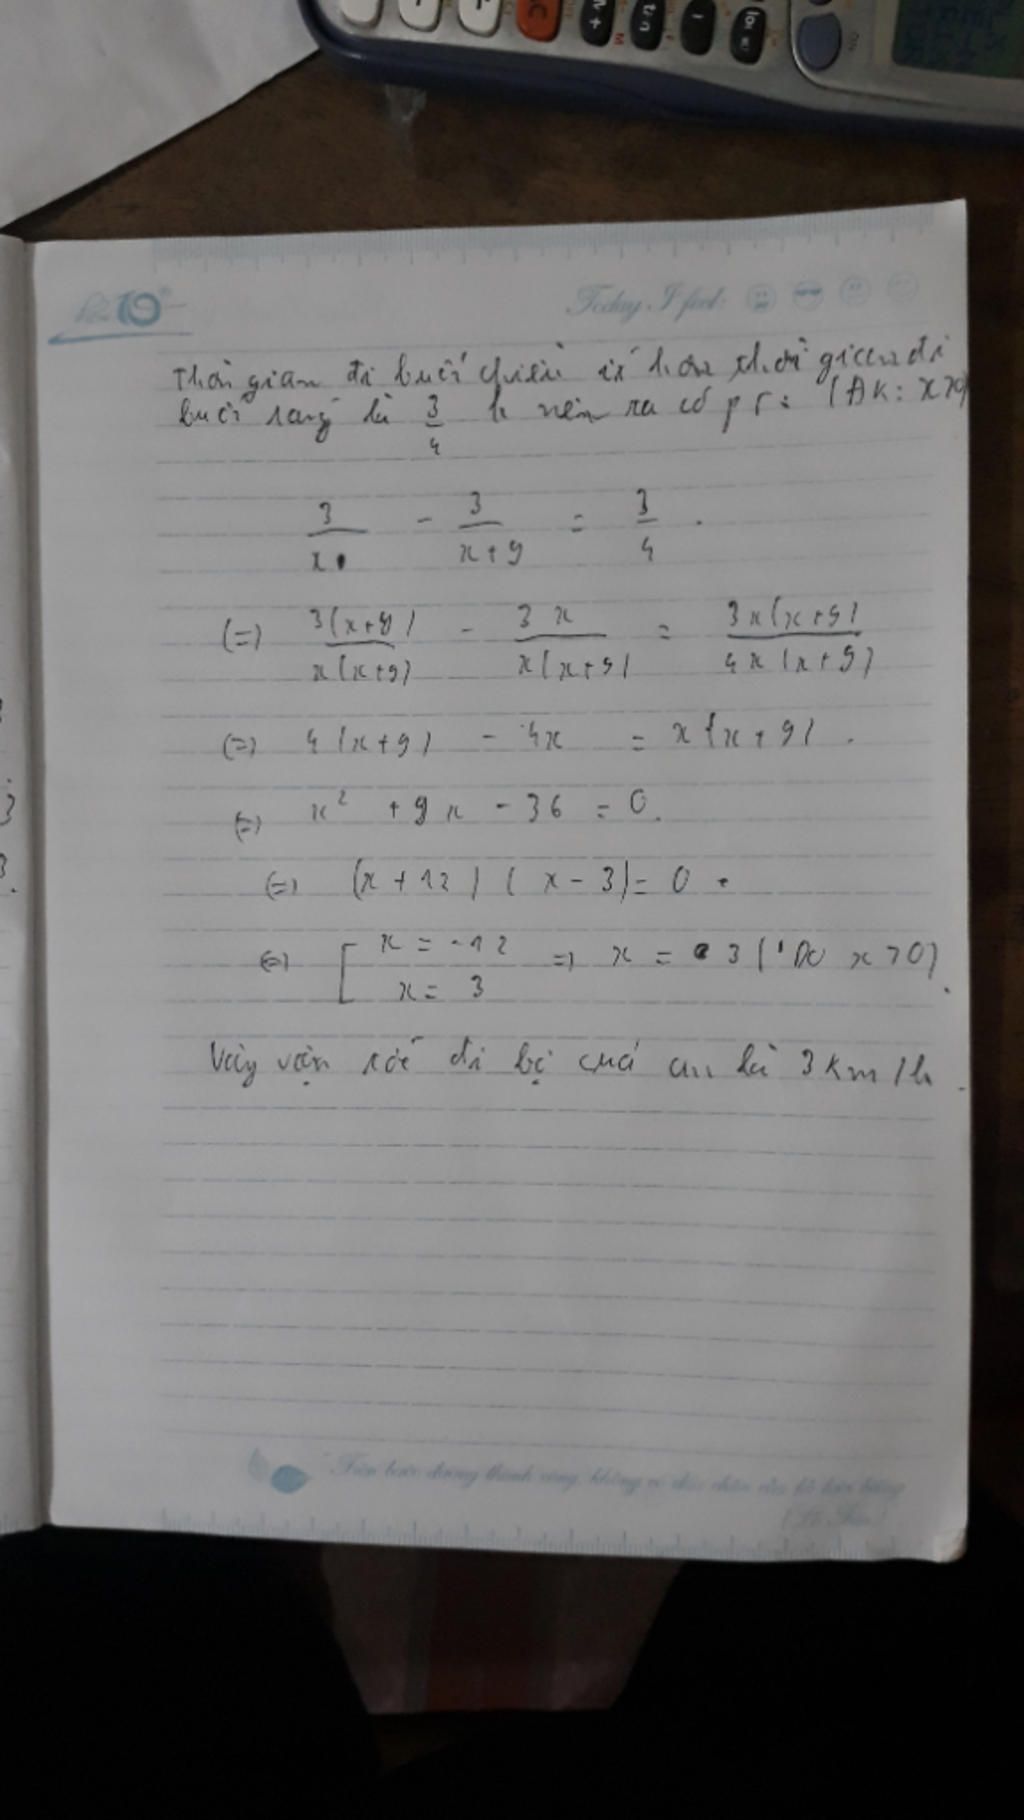 Today I feel:
Thời gian đi buổi chiều ít hơn thời gian đi
buổi sáng là 3/4 h nên ta có pt: (ĐK: x>0)
3/x - 3/(x+9) = 3/4.
(=) 3(x+9)/x(x+9) - 3x/x(x+9) = 3x(x+9)/4x(x+9)
(=) 4(x+9) - 4x = x(x+9).
(=) x² + 9x - 36 = 0.
(=) (x+12)(x-3)=0.
(=) [ x = -12
x = 3 => x = 3 (Do x>0).
Vậy vận tốc đi bộ của an là 3 km/h.
Trên bước đường thành công, không có dấu chân của kẻ lười biếng
(Lỗ Tấn)